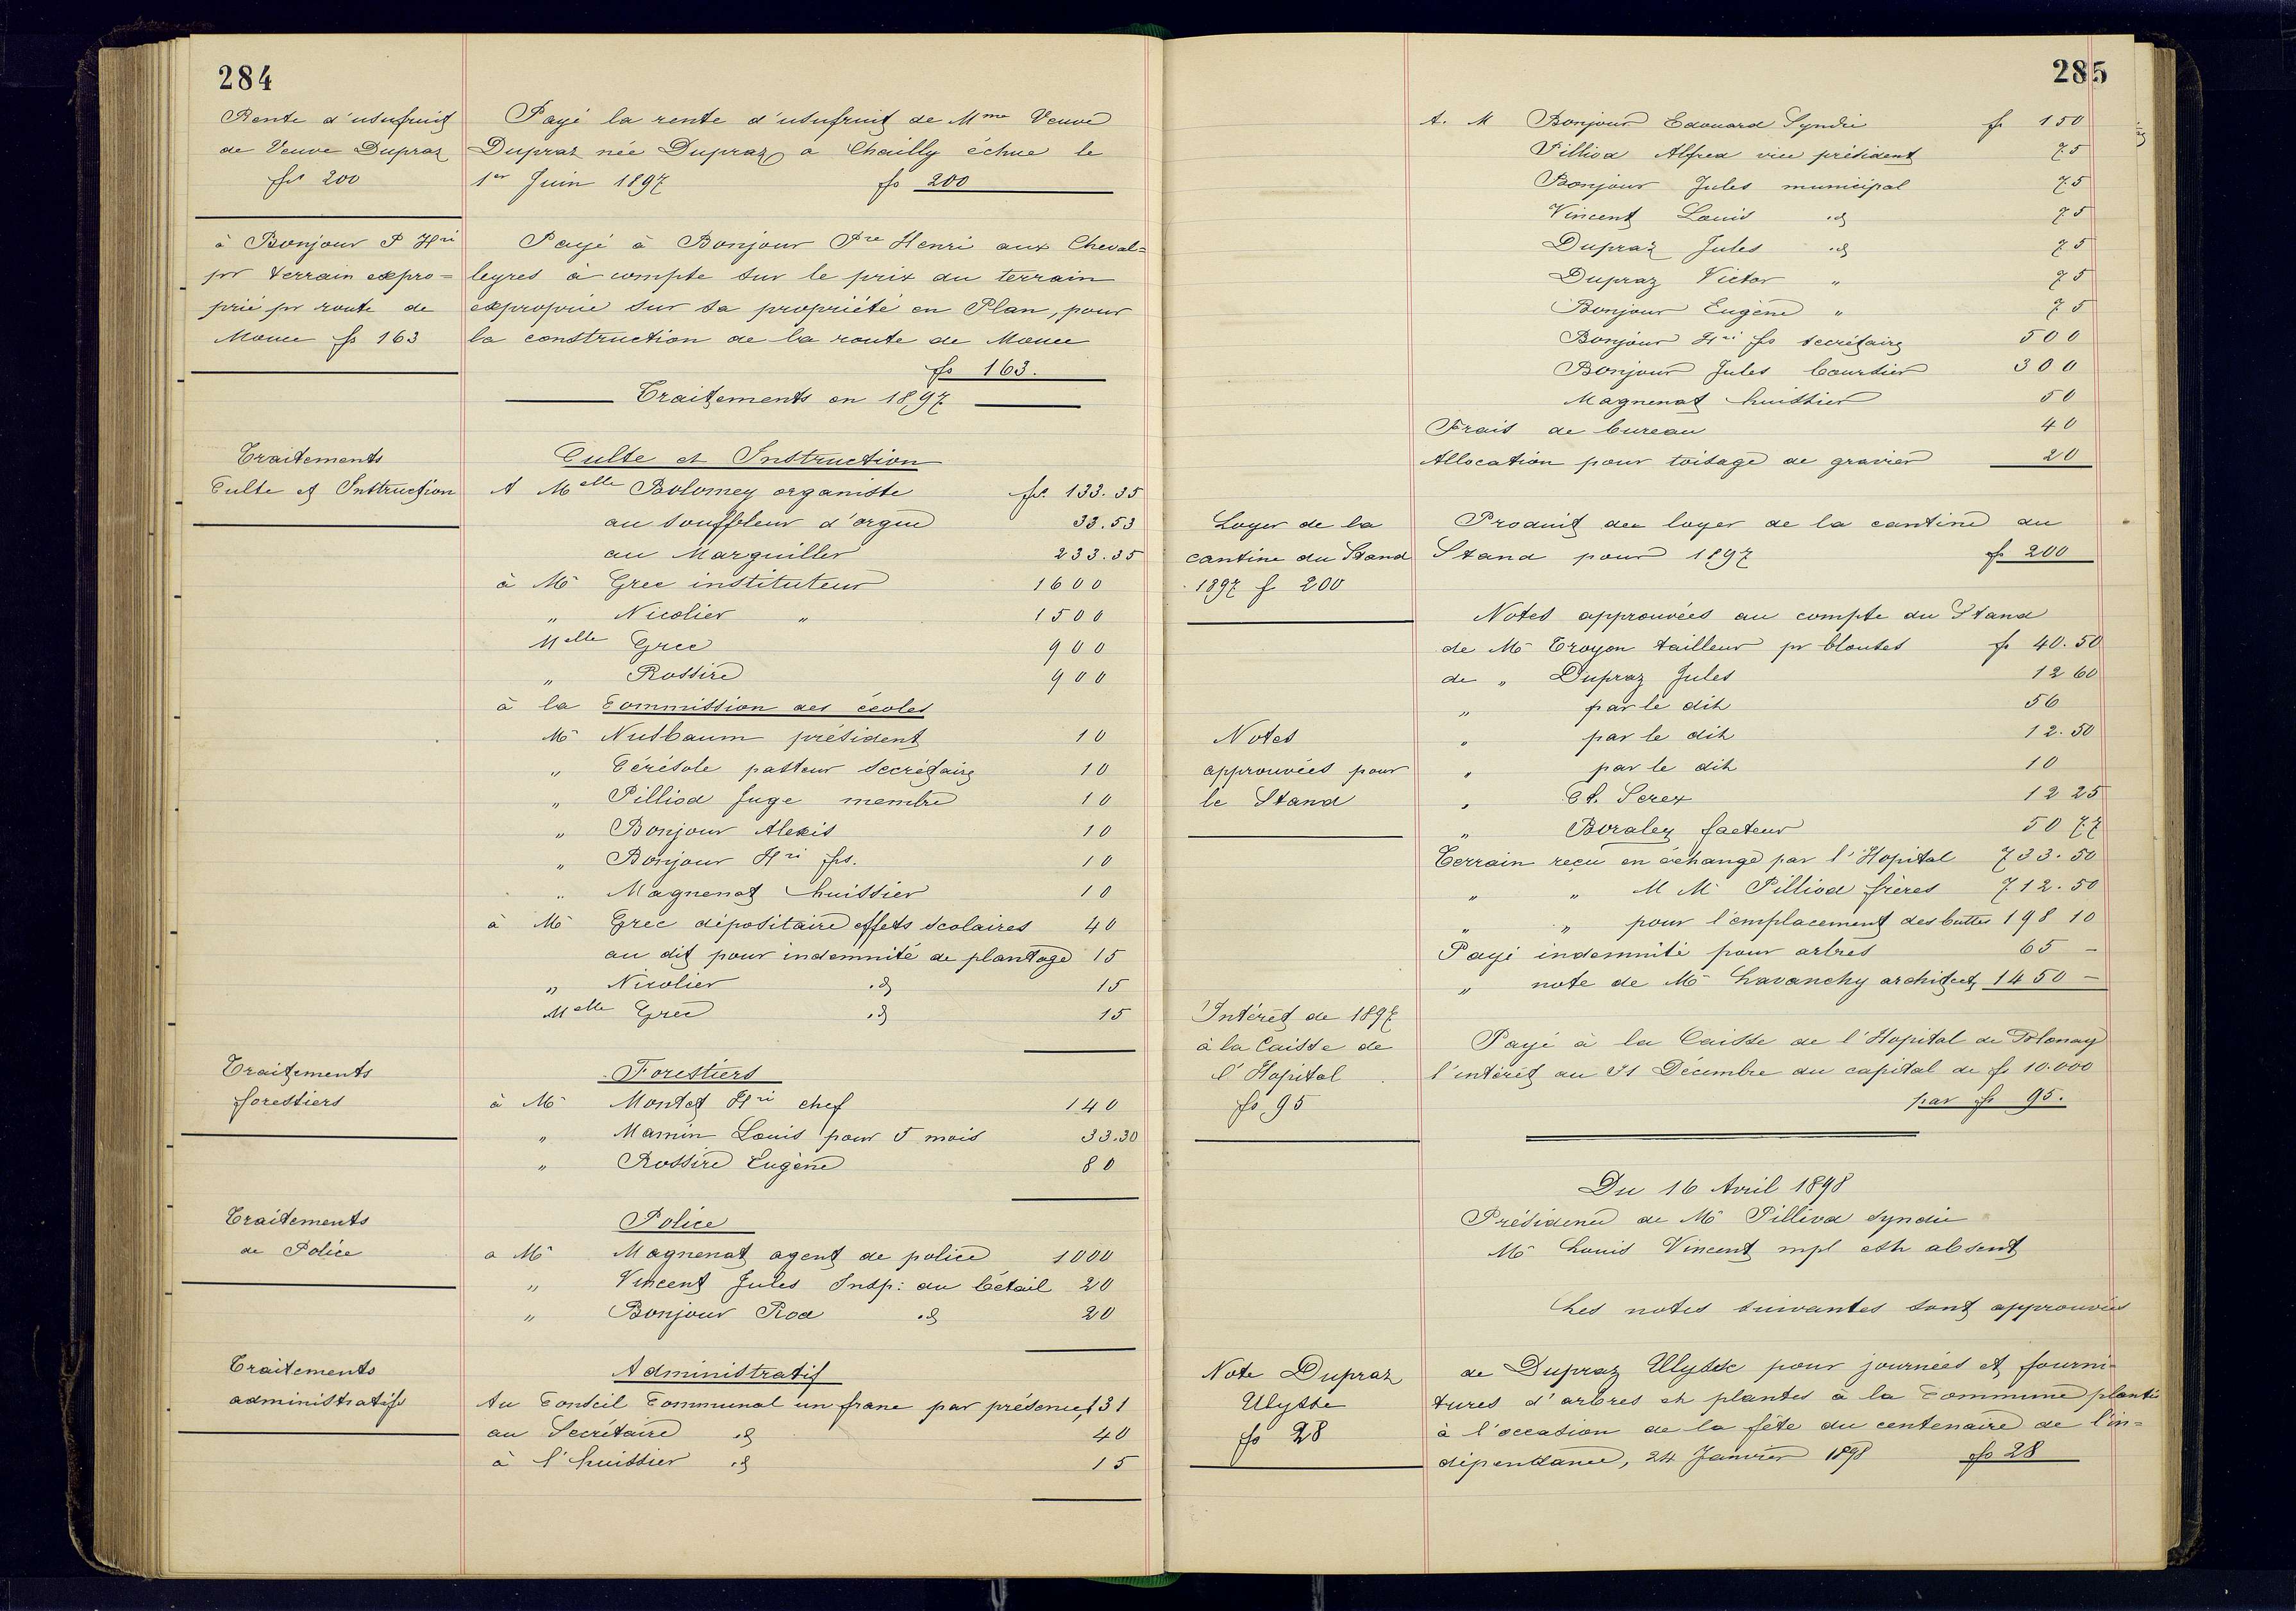 284
Rente d'usufruit
de Veuve Dupraz
frs 200
Payé la rente d'usufruit de Mme Veuve
Dupraz née Dupraz à Chailly échue le
1er Juin 1897 fs 200
à Bonjour P Hri
pr terrain expro=
prié pr route de
fs 163
Payé à Bonjour Pre Henri aux Cheval=
leyres à compte sur le prix du terrain
exproprié sur sa propriété en Plan, pour
la construction de la route de
fs 163.
Traitements en 1897
Traitements
Culte et Instruction
Culte et Instruction
A Melle Bolomey organiste frs. 133.35
au souffleur d'orgue 33.53
au Marguiller 233.35
à Mr Grec instituteur 1600
" Nicolier " 1500
Melle Grec 900
" Rossire 900
à la Commission des écoles
Mr Nusbaum président 10
" Cérésole pasteur secrétaire 10
" Pilliod Juge membre 10
" Bonjour Alexis 10
" Bonjour Hri fs. 10
" Magnenat huissier 10
à Mr Grec dépositaire effets scolaires 40
au dit pour indemnité de plantage 15
" Nicolier id 15
Melle Grec id 15
Traitements
forestiers
Forestiers
à Mr Montet Hri chef 140
" Mamin Louis pour 5 mois 33.30
" Rossire Eugène 80
Traitements
de Police
Police
a Mr Magnenat agent de police 1000
" Vincent Jules Insp: du bétail 20
" Bonjour Rod id 20
Traitements
administratifs
Administratif
Au Conseil Communal un franc par présence 131
au Secrétaire id 40
à l'huissier id 15
285
A. M Bonjour Edouard Syndic fr 150
Pilliod Alfred vice président 75
Bonjour Jules municipal 75
Vincent Louis id 75
Dupraz Jules id 75
Dupraz Victor " 75
Bonjour Eugène " 75
Bonjour Hri fs secrétaire 500
Bonjour Jules boursier 300
Magnenat huissier 50
Frais de bureau 40
Allocation pour toisage de gravier 20
Loyer de la
cantine du Stand
1897 f 200
Produit du loyer de la cantine du
Stand pour 1897 fs 200
Notes approuvées au compte du Stand
de Mr Troyon tailleur pr blouses fr 40.50
de " Dupraz Jules 12 60
" par le dit 56
Notes
approuvées pour
le Stand
" par le dit 12.50
" par le dit 10
" Serex 12 25
" facteur 50 77
Terrain reçu en échange par l'Hopital 733.50
" " M Mr Pilliod frères 712.50
" " pour l'emplacement des buttes 198 10
Payé indemnité pour arbres 65 -
" note de Mr Lavanchy architect 1450 -
Intérêt de 1897
à la Caisse de
l'Hopital
fs 95
Payé à la Caisse de l'Hopital de Blonay
l'intérêt au 31 Décembre du capital de fs 10.000
par fr 95.
Du 16 Avril 1898
Présidence de Mr Pilliod syndic
Mr Louis Vincent mpl est absent
Les notes suivantes sont approuvées
Note Dupraz
Ulysse
fs 28
de Dupraz Ulysse pour journées et fourni-
tures d'arbres et plantes à la Commune planté
à l'occasion de la fête du centenaire de l'in=
dépendance, 24 Janvier 1898 fs 28